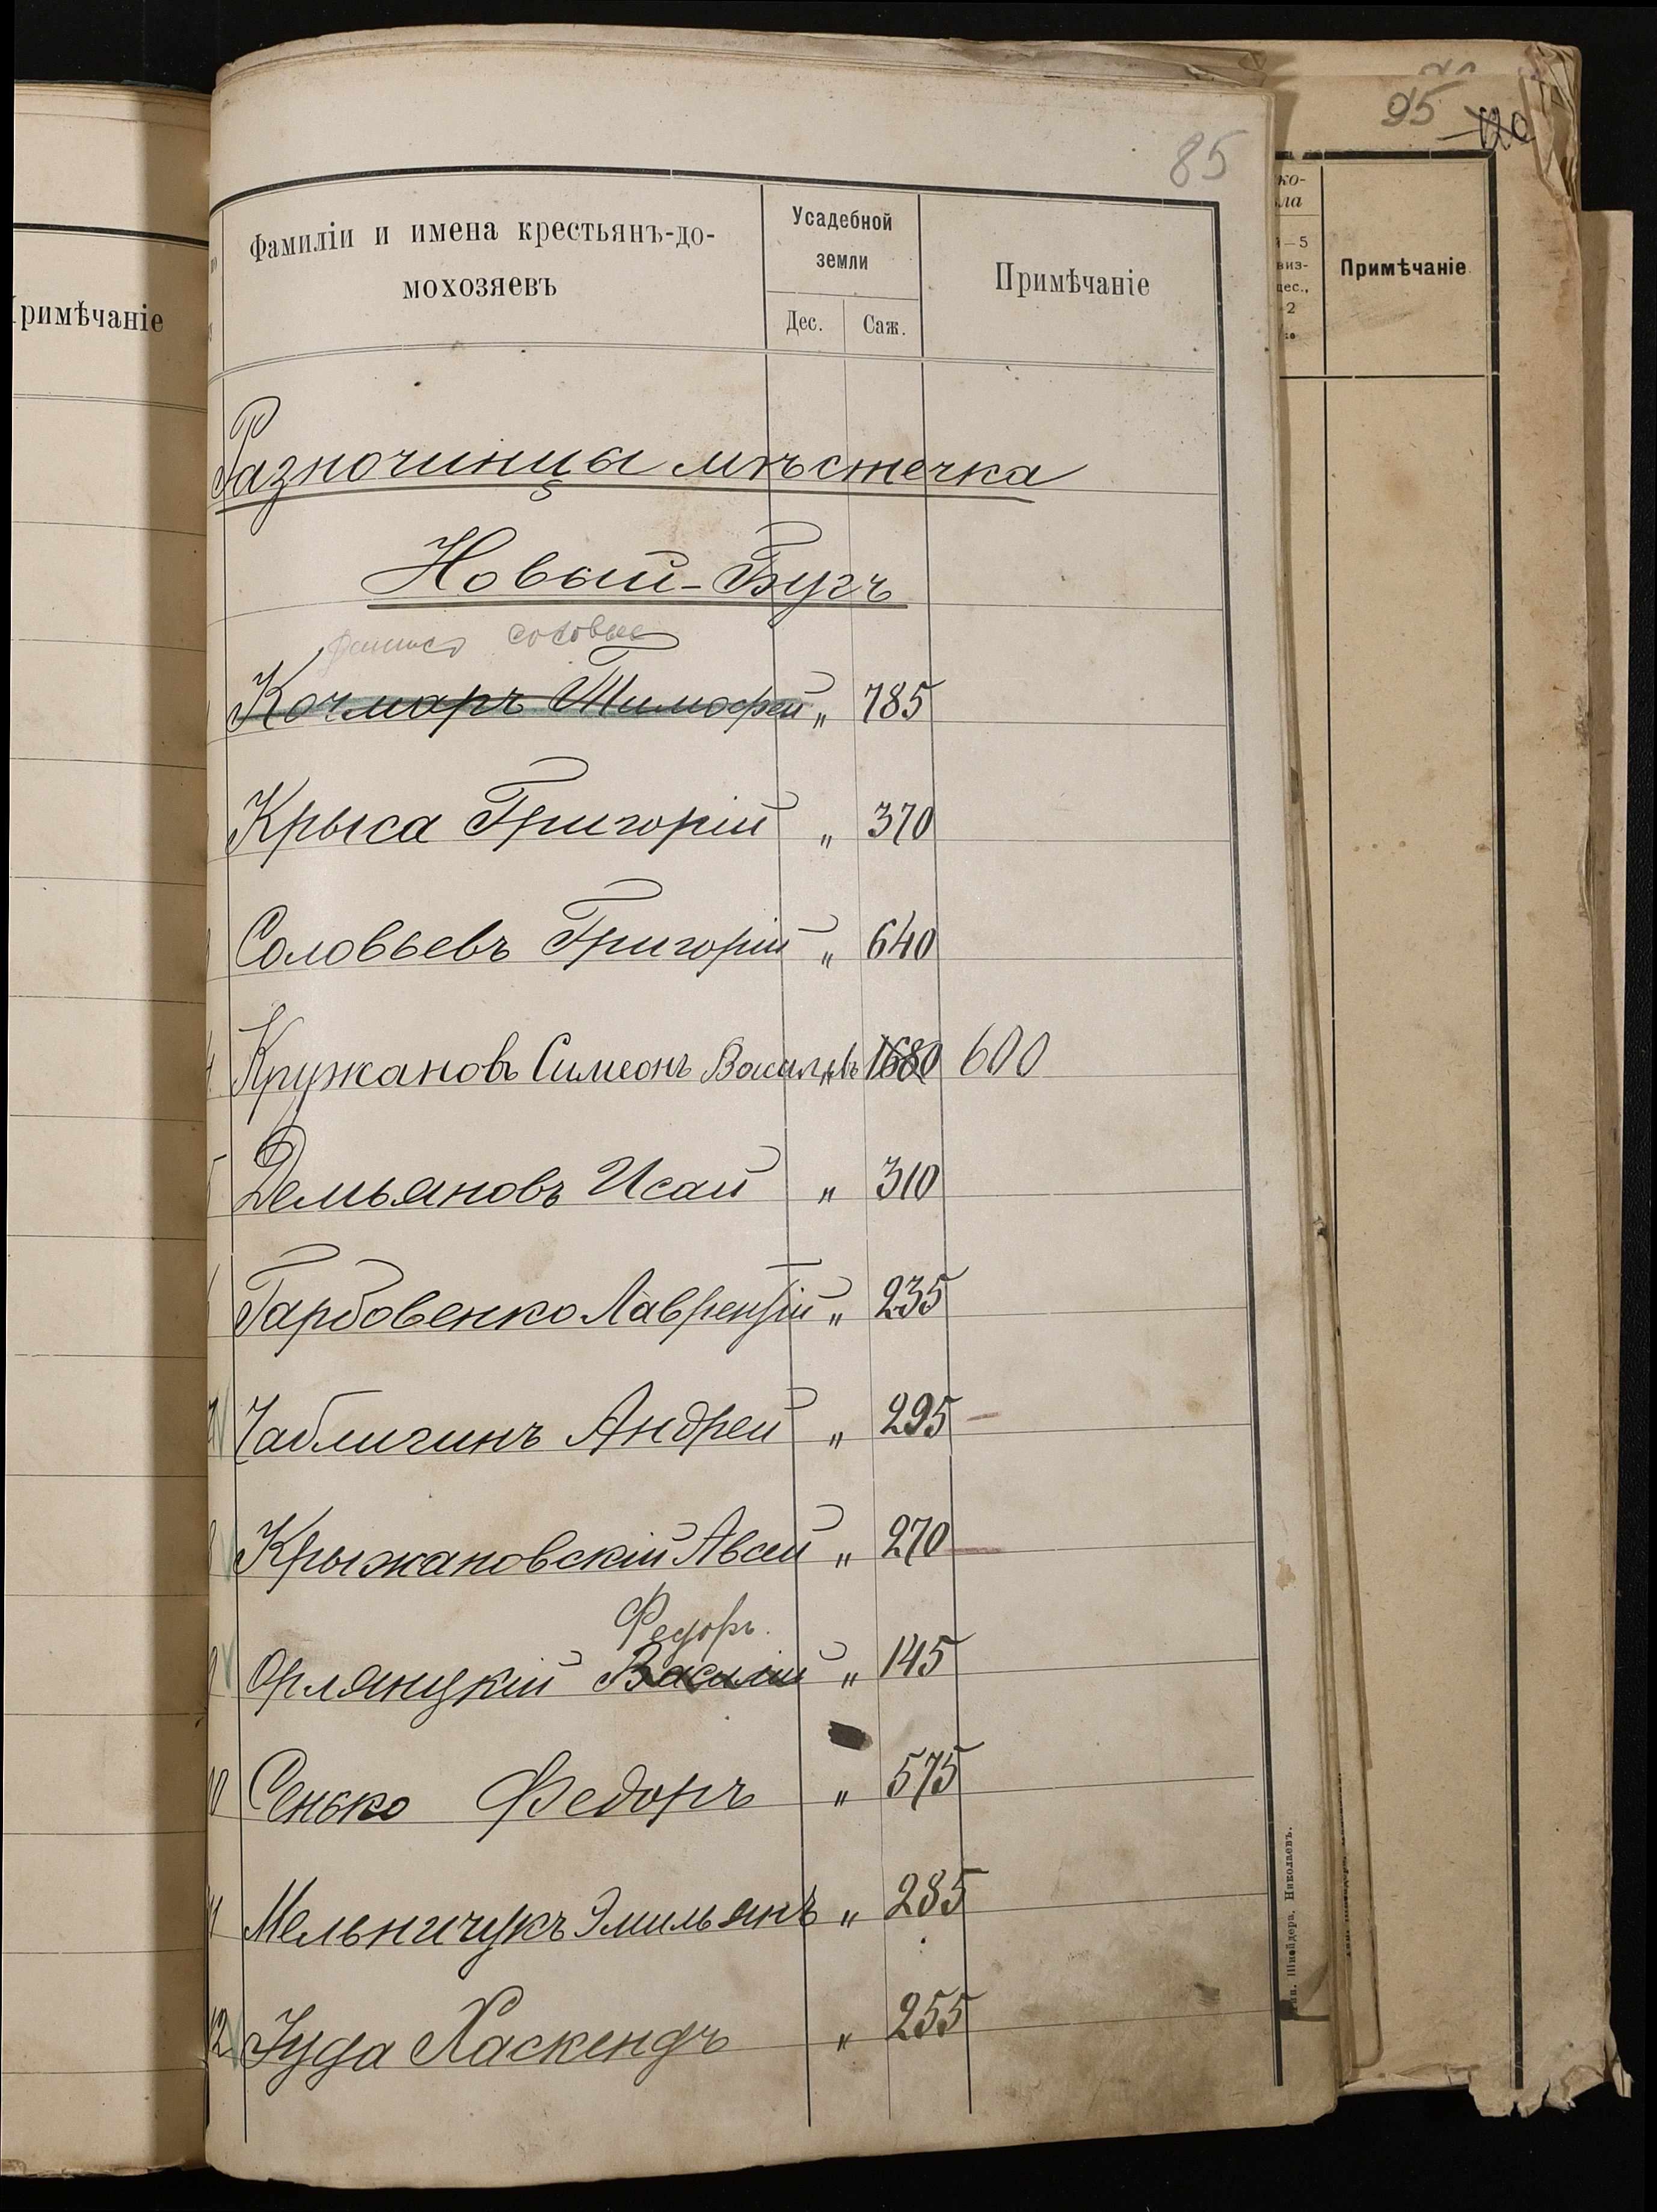 95
120
85
Примѣчаніе
Фамиліи и имена крестьянъ-до-
мохозяевъ
Усадебной
земли
Дес.
Саж.
Примѣчаніе
ко-
ла
5
виз-
дес.,
2
Примѣчаніе
Разночинцы мѣстечка
Новый-Бугъ
Кочмаръ Тимофей „ 785
Крыса Григорій „ 370
Соловьевъ Григорій „ 640
4 Кружановъ Симеонъ Васильевъ „ 1680 600
5 Демьяновъ Исай „ 310
Гарбовенко Лаврентій „ 235
7 Чаблигинъ Андрей „ 295 —
8 Крыжановскій Авсей „ 270 —
Федоръ.
9 Орлянцкій Василій „ 145
10 Сенько Федоръ „ 575
11 Мельничукъ Эмильянъ „ 285
12 Іуда Хаскендъ „ 255
Шнейдера, Николаевъ.